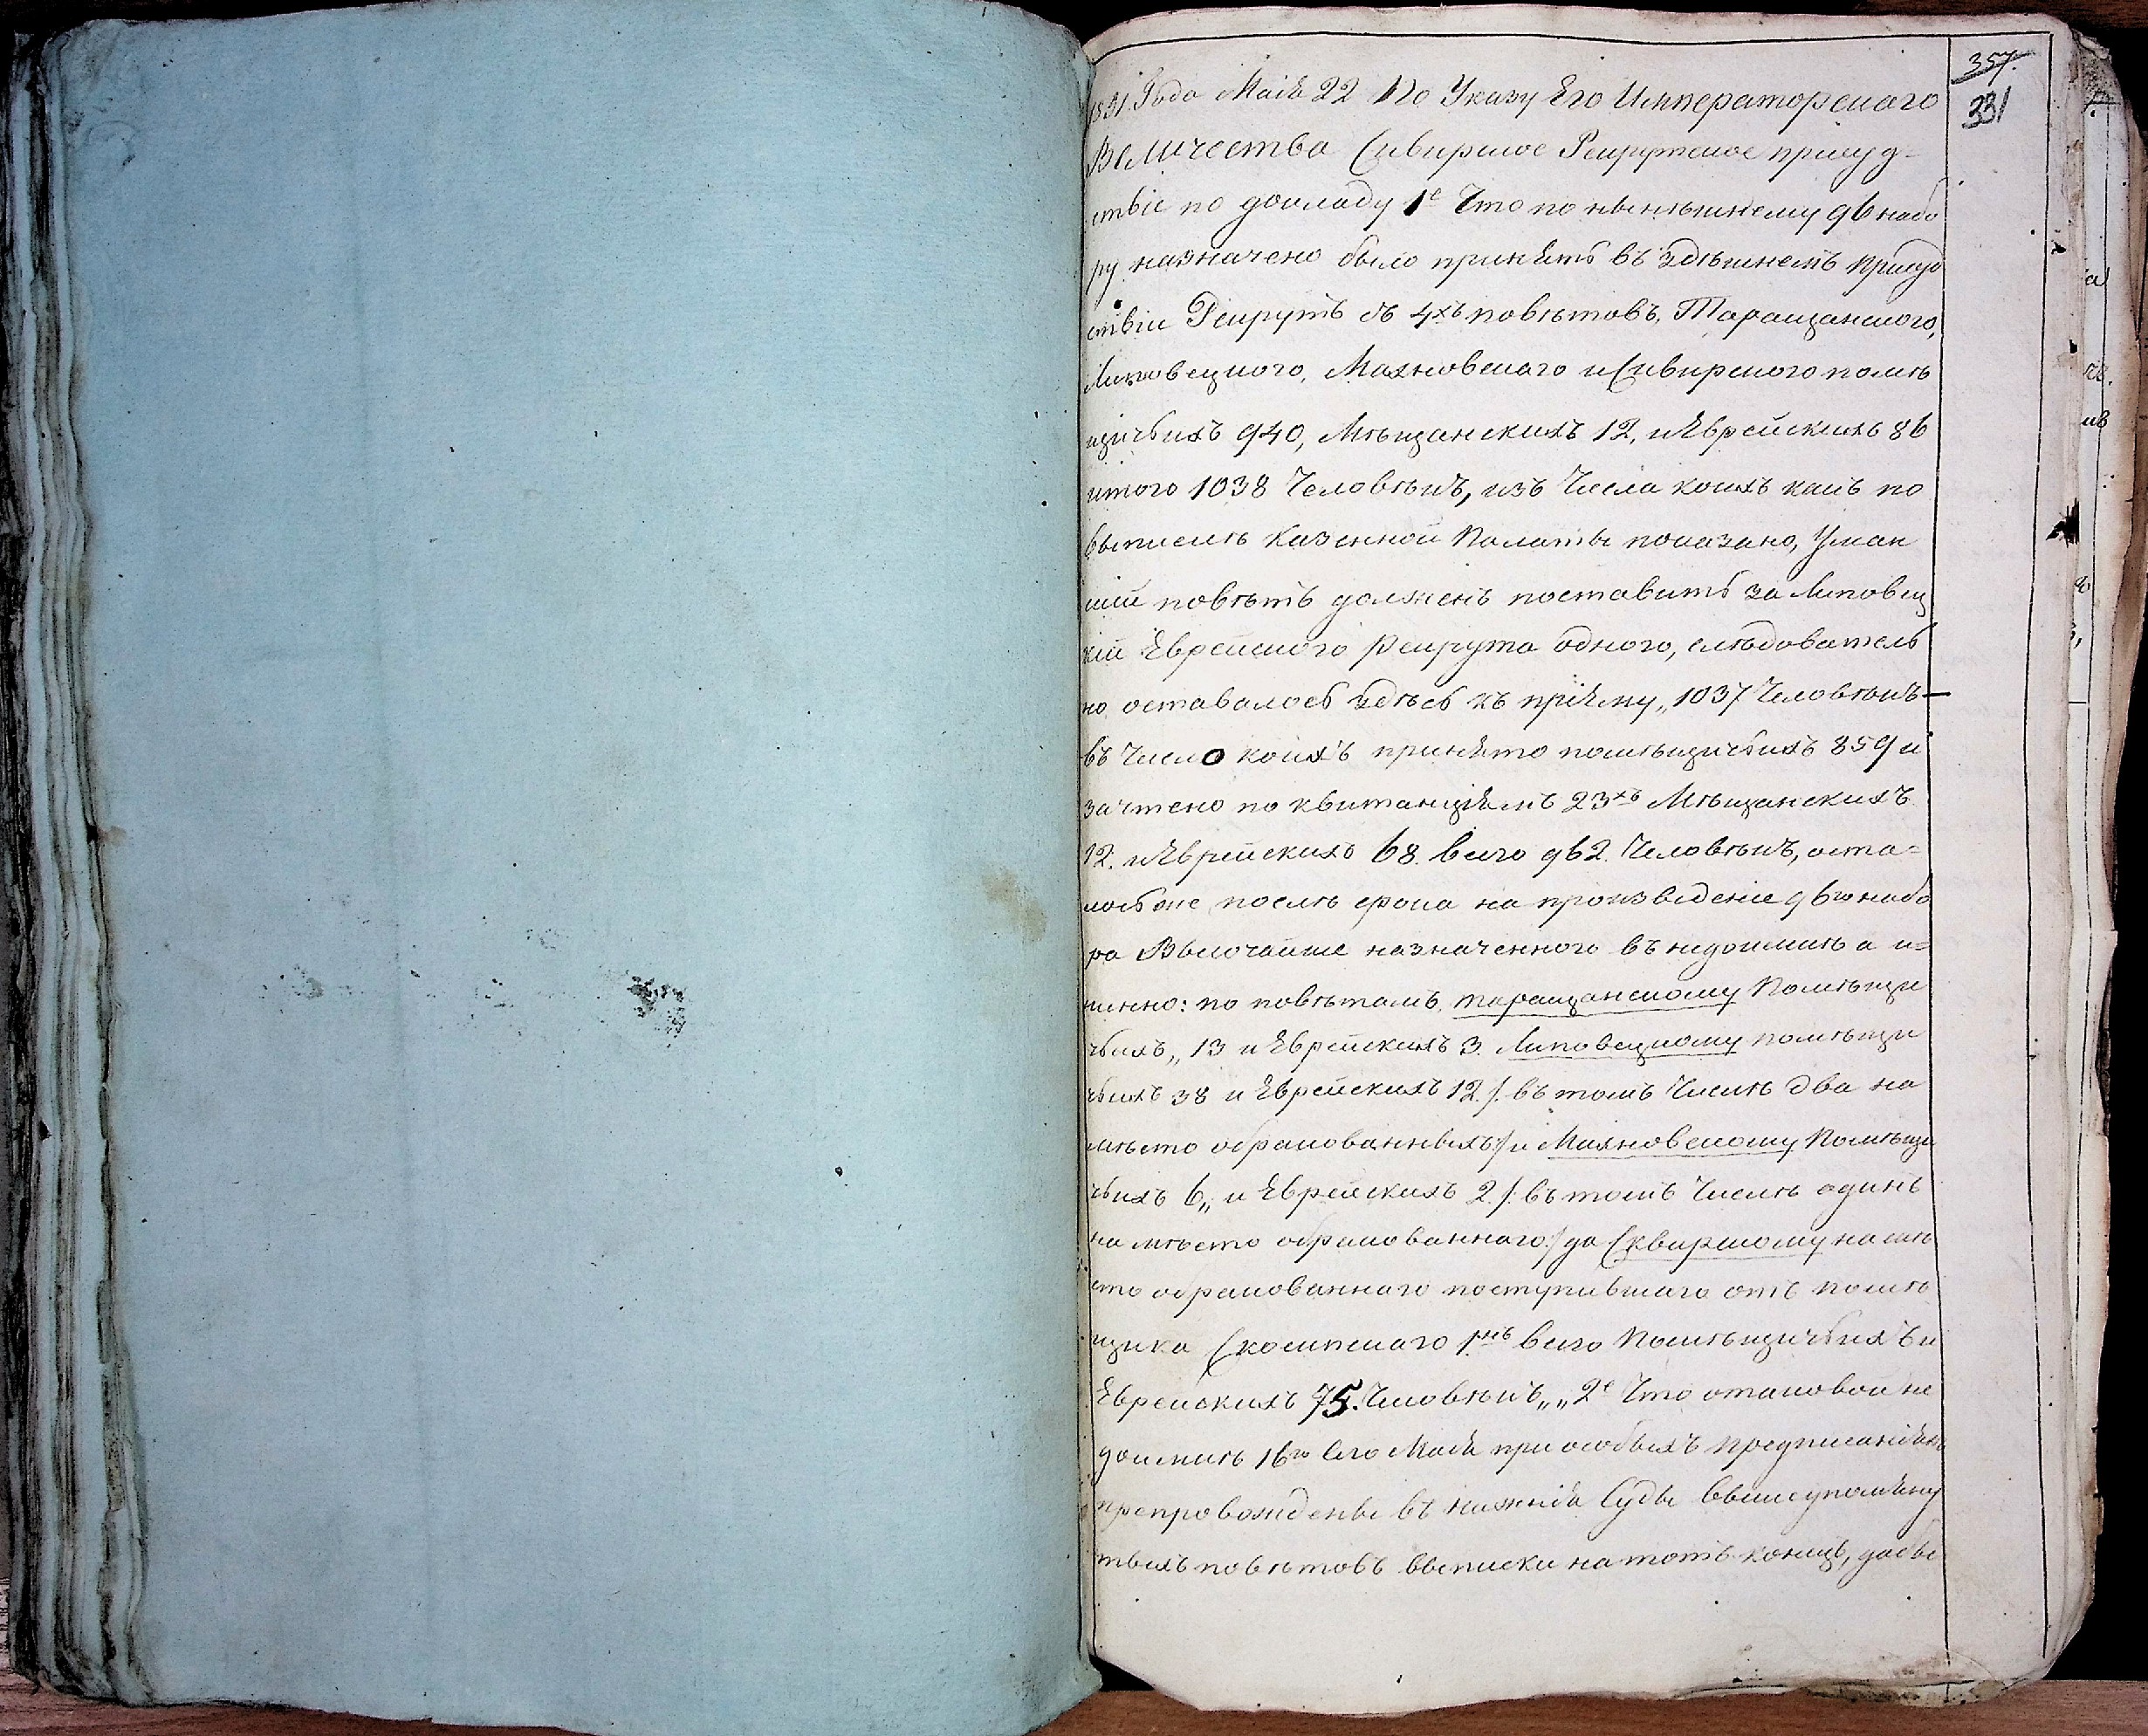 357.
331
1831. Года Маія 22 По Указу Его Императорскаго
Величества Сквирское Рекрутское присуд-
ствіе по докладу 1е Что по нынѣшнему 96 набо
ру назначено было принять въ здѣшнемъ присуд
ствіи Рекрутъ съ 4хъ повѣтовъ, Таращанского,
Липовецкого, Махновскаго и Сквирского помѣ
щичьихъ 940, Мѣщанскихъ 12, и Еврейскихъ 86
итого 1038 Человѣкъ, изъ Числа коихъ какъ по
выпискѣ Казенной Палаты показано, Уман
скій повѣтъ долженъ поставить за Липовец
кій Еврейского Рекрута одного, слѣдователь
но оставалось здѣсь къ пріему „ 1037 Человѣкъ —
въ Число коихъ принято помѣщичьихъ 859 и
зачтено по квитанціямъ 23хъ Мѣщанскихъ
12. и Еврейскихъ 68. всего 962. Человѣкъ, оста=
лось же послѣ срока на произведеніе 96го набо
ра Высочайше назначенного въ недоимкѣ а и=
менно: по повѣтамъ, таращанскому Помѣщи
чьихъ „ 13 и Еврейскихъ 3. Липовецкому помѣщи
чьихъ 38 и Еврейскихъ 12 /: въ томъ Числѣ два на
мѣсто обракованныхъ :/ и Махновскому Помѣщи
чьихъ 6 „ и Еврейскихъ 2 /: въ томъ Числѣ одинъ
на мѣсто обракованнаго :/ да Сквирскому на мѣ
сто обракованнаго поступившаго отъ помѣ
щика 1нъ всего Помѣщичьихъ и
Еврейскихъ 75. Человѣкъ „ „ 2е Что отаковой не
доимкѣ 16го сего Маія при особыхъ предписаніяхъ
препровождены въ нижнія Суды вышеупомяну
тыхъ повѣтовъ выписки на тотъ конецъ, дабы